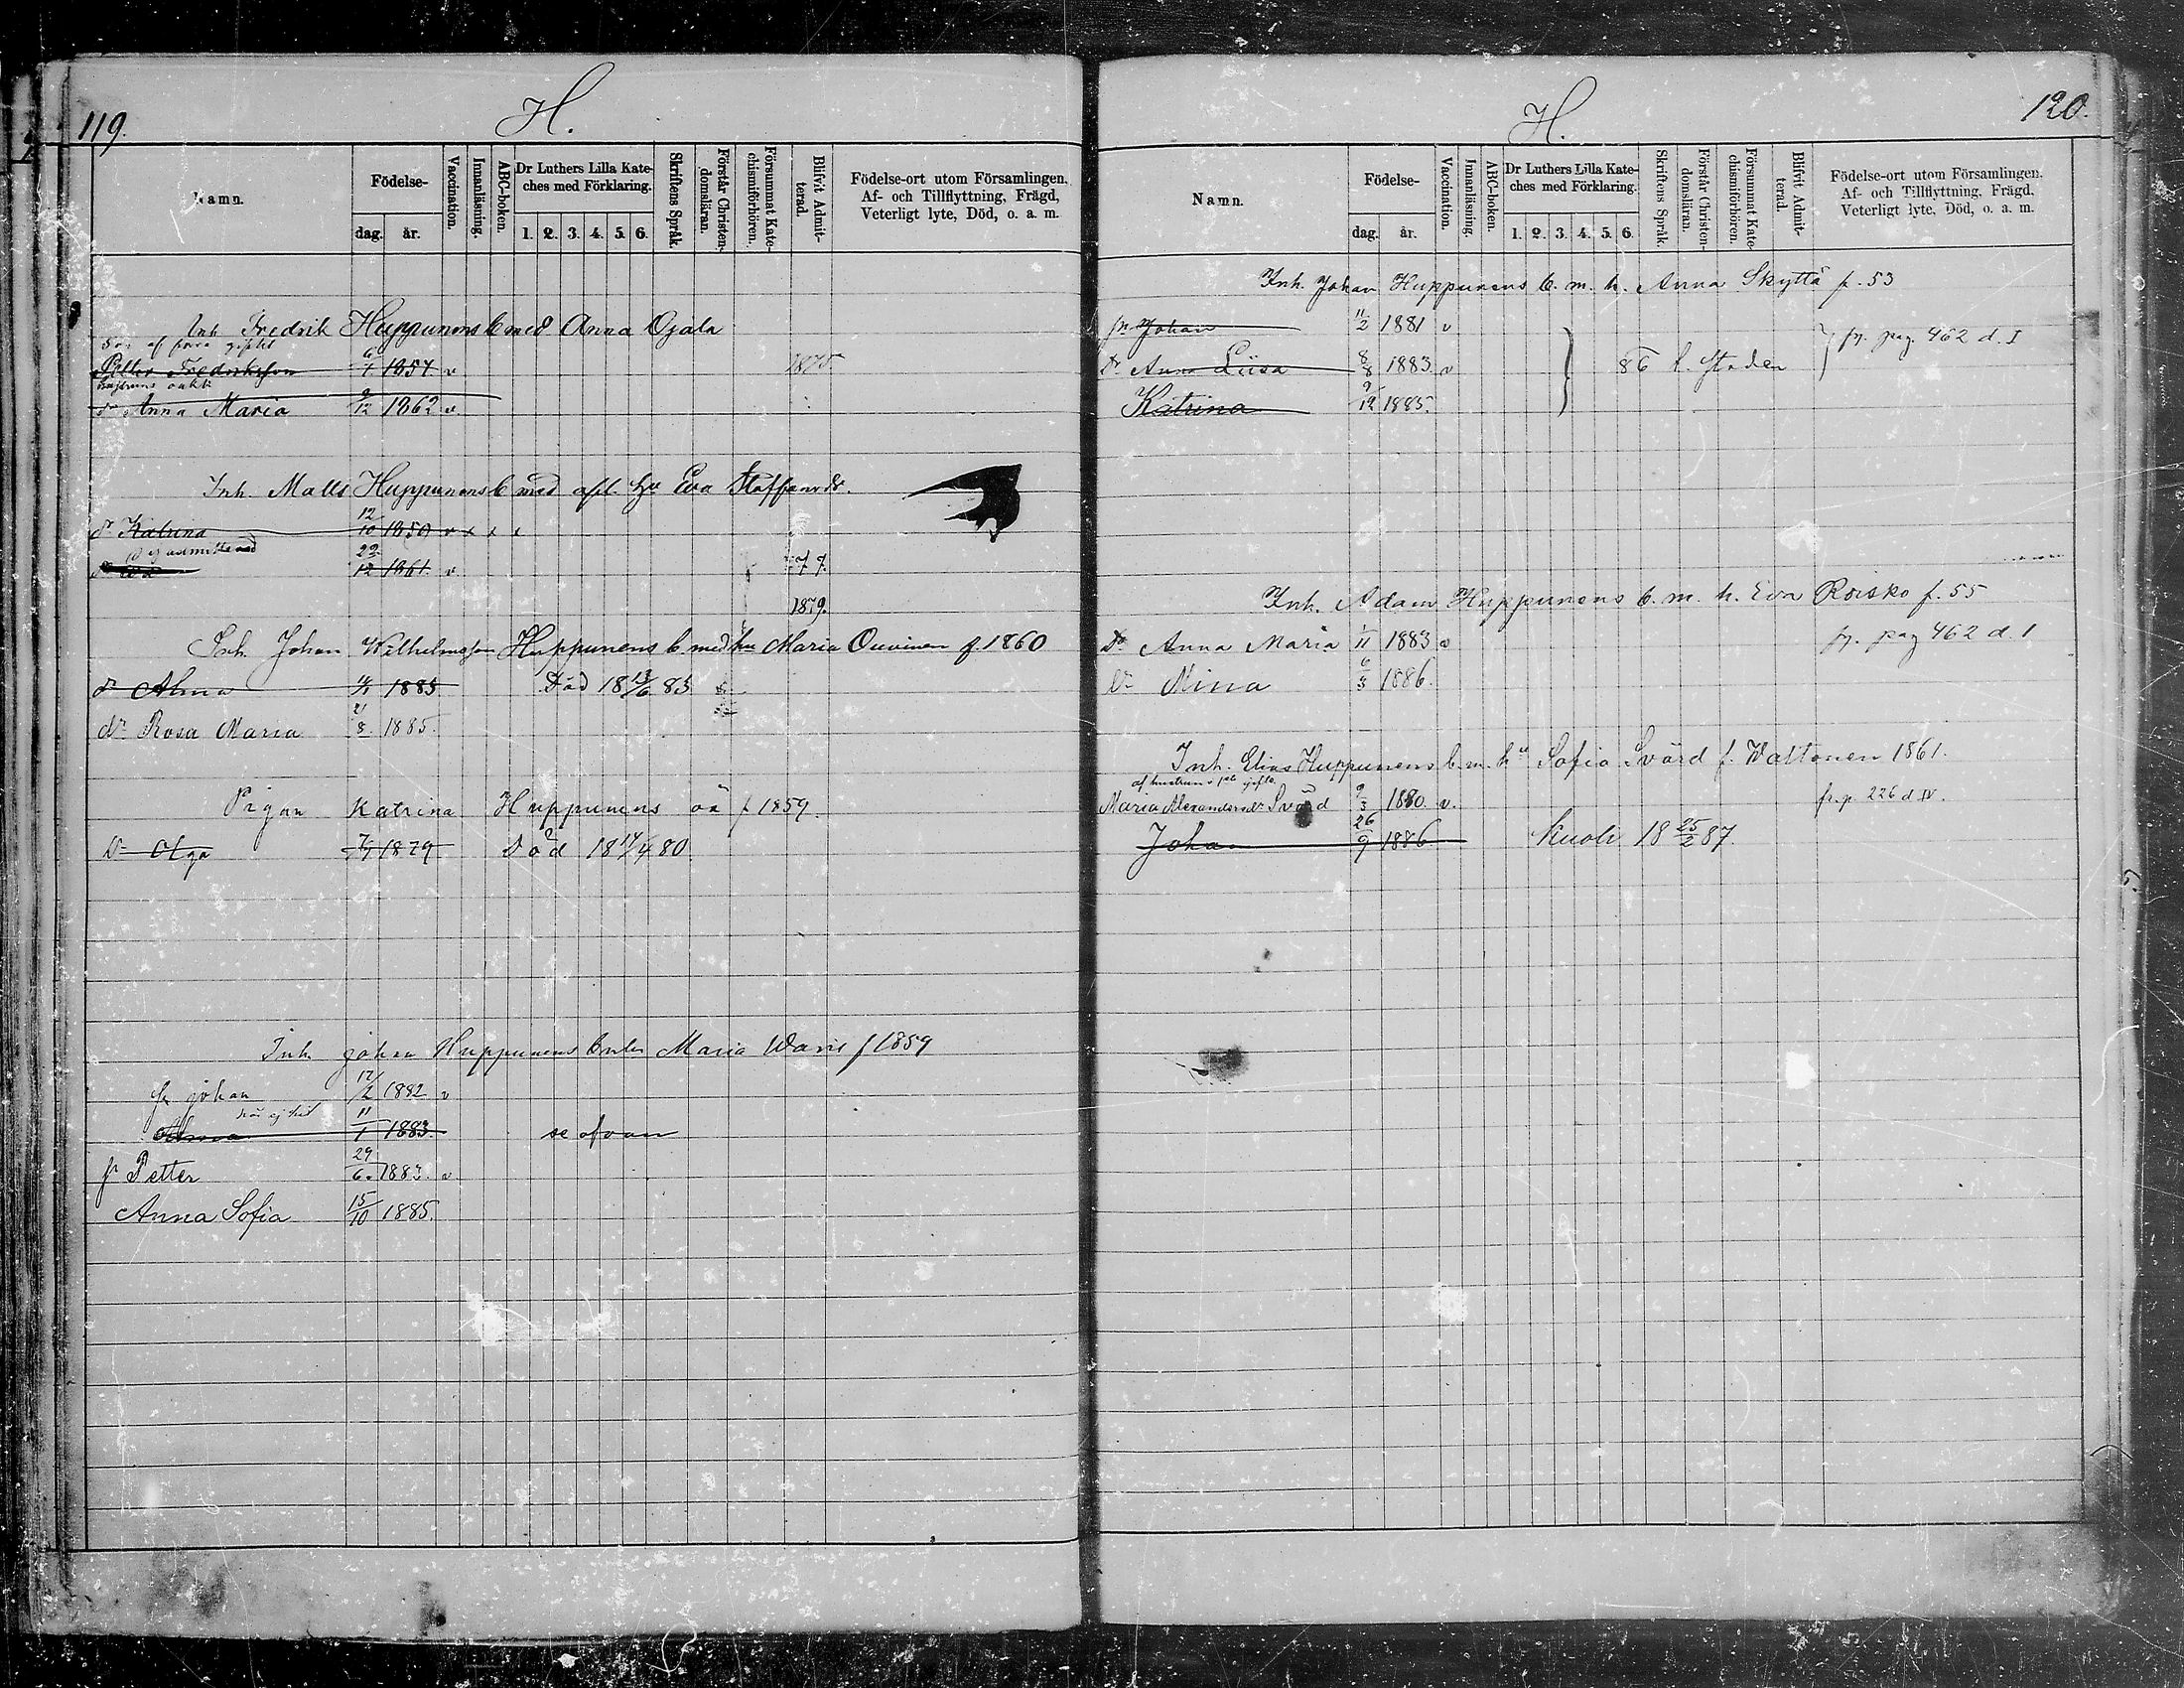 119.
H.
Namn.
Födelse-
dag. år.
Vaccination.
Innanläsning.
ABC-boken.
Dr Luthers Lilla Kate-
ches med Förklaring.
1. 2. 3. 4. 5. 6.
Skriftens Språk.
Förstår Christen-
domsläran.
Försummat Kate-
chismiförhören.
Blifvit Admit-
terad.
Födelse-ort utom Församlingen,
Af- och Tillflyttning, Frägd,
Veterligt lyte, Död, o. a. m.
Inh. Fredrik Huppunens b med Anna Ojala
Petter Fredriksson 1857 v 1875
dr Anna Maria 9/12 1862 v
Inh. Matts Huppunens b med Eva Staffansdr.
dr Katrina 12/10 1850 v x x x
ej admitterad
22/12 1861 v
1879.
Inh. Johan Wilhelmsson Huppunens b. med hu Maria Ouvinen f. 1860
dr Alma 1883 Död 18 13/6 83
dr Rosa Maria 21/8 1885.
Pigan Katrina Huppunens oä f 1859.
Dr Olga 1879 Död 18 80
Inh Johan Huppunens Maria Waris f 1859
Johan 12/2 1882 v
11/1 1883 se ofvan
Petter 29/6 1883. v
Anna Sofia 15/10 1885.
120.
H.
Namn.
Födelse-
dag. år.
Vaccination.
Innanläsning.
ABC-boken.
Dr Luthers Lilla Kate-
ches med Förklaring.
1. 2. 3. 4. 5. 6.
Skriftens Språk.
Förstår Christen-
domsläran.
Försummat Kate-
chismiförhören.
Blifvit Admit-
terad.
Födelse-ort utom Församlingen,
Af- och Tillflyttning, Frägd,
Veterligt lyte, Död, o. a. m.
Inh. Johan Huppunens b. m. h. Anna Skyttä f. 53
Johan 11/2 1881 v fr. pag. 462 d. I
Dr Anna Liisa 8/8 1883 v 86 t. staden
Katrina 9/12 1885.
Inh. Adam Huppunens b. m. h. Eva Roisko f. 55
Dr Anna Maria 1/11 1883 v fr. pag 462 d. 1
Dr Mina 6/3 1886.
Inh. Elias Huppunens b. m. hu Sofia Svärd f. Wattonen 1861.
Maria Alexandersdr Svärd 9/3 1880 v. fr. p. 226 d IV.
Johan 26/9 1886 Kuoli 18 25/2 87.